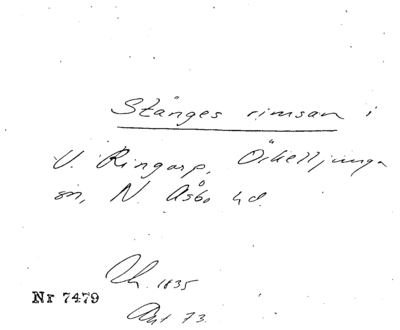 Stånges rimsan i
V. Ringarp, Örkelljunga
sn, N. Åsbo hd.
1835
Nr 7479
73.